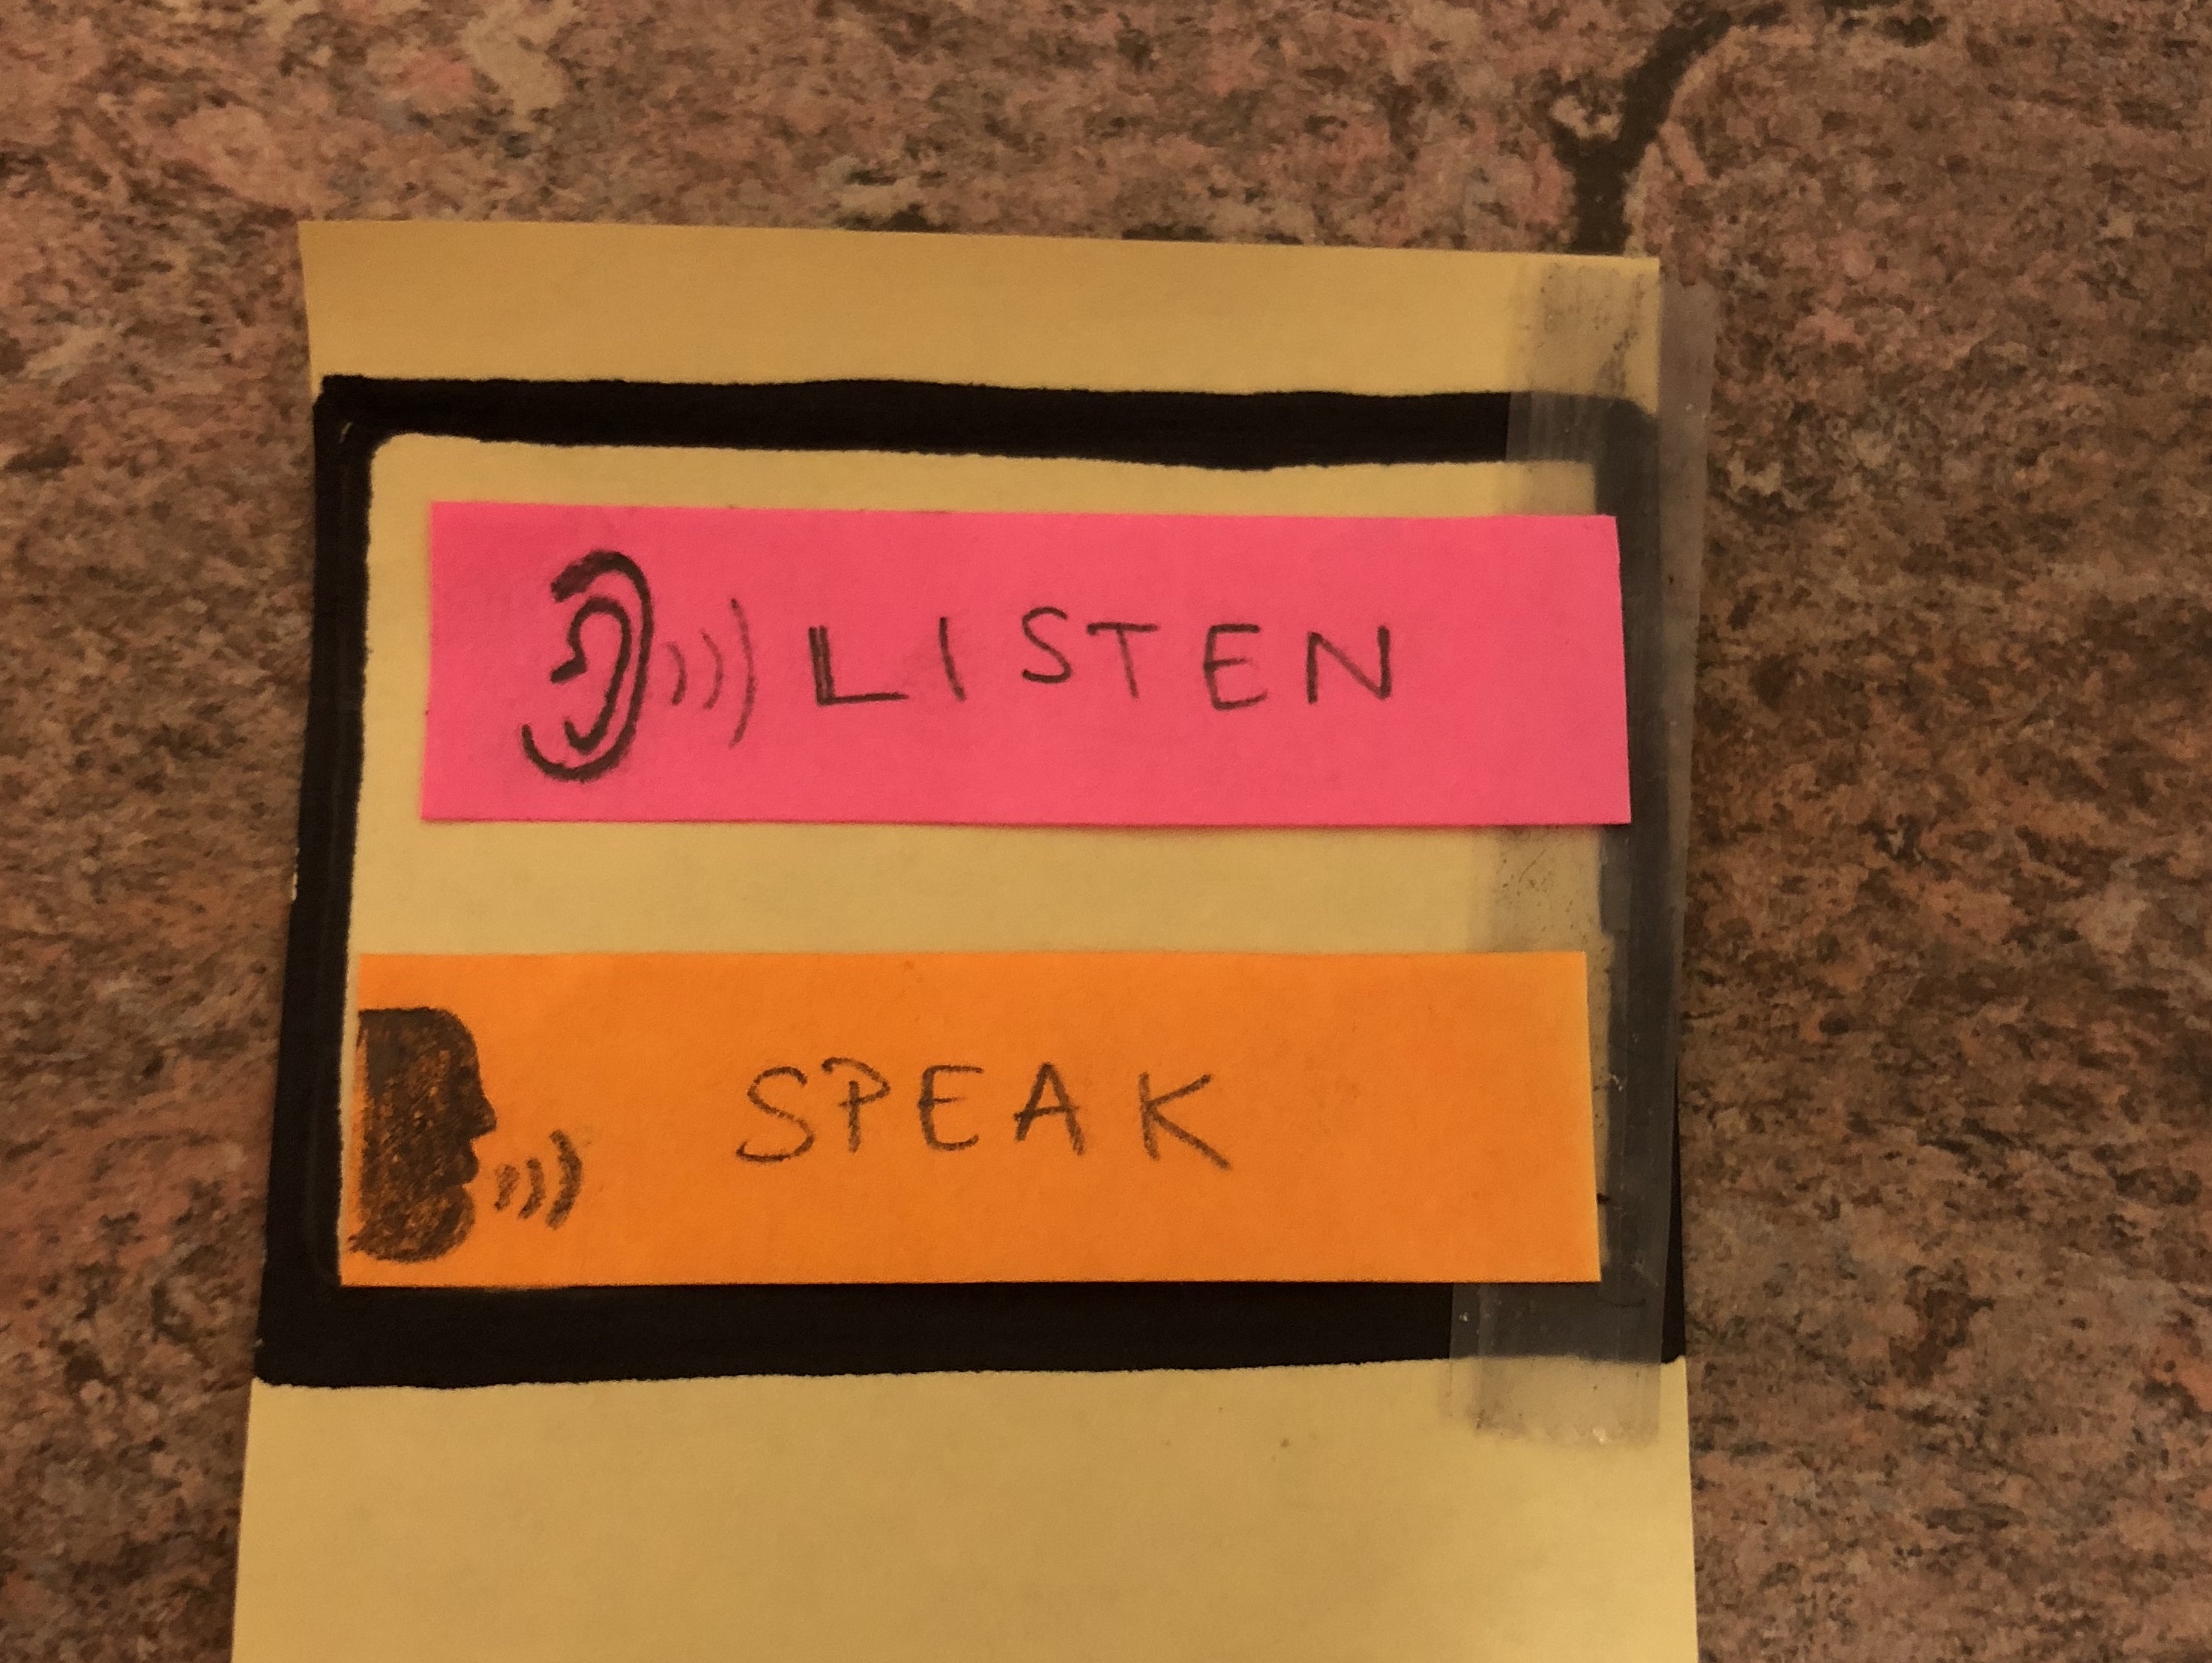 LISTEN
SPEAK